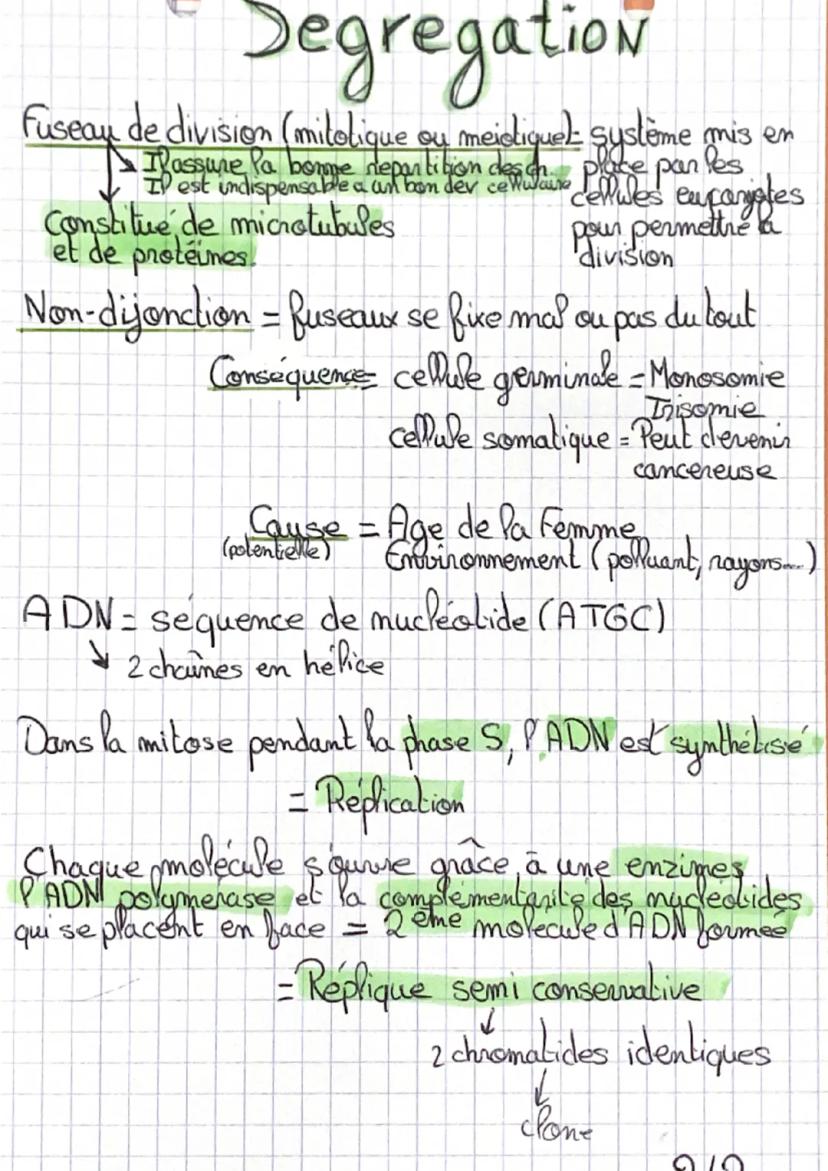 Segregation
Fuseau de division (mitotique ou meiotique) = système mis en
place par les
cellules eucaryotes
pour permettre la
division
Il assure la bonne repartition des ch.
Il est indispensable a un bon dev cellulaire
Constitué de microtubules
et de protéines.
Non-dijonction = fuseaux se fixe mal ou pas du tout
Conséquence = cellule germinale = Monosomie
Trisomie
cellule somatique = Peut devenir
cancereuse
Cause = Age de la Femme
(potentielle) Environnement (polluant, rayons...)
ADN = séquence de nucléotide (ATGC)
2 chaînes en hélice
Dans la mitose pendant la phase S, l'ADN est synthétisé
= Réplication
Chaque molécule s'ouvre grâce à une enzimes
l'ADN polymerase et la complémentarité des nucléotides
qui se placent en face = 2ème molecule d'ADN formée
= Réplique semi conservative
2 chromatides identiques
clone
2/2